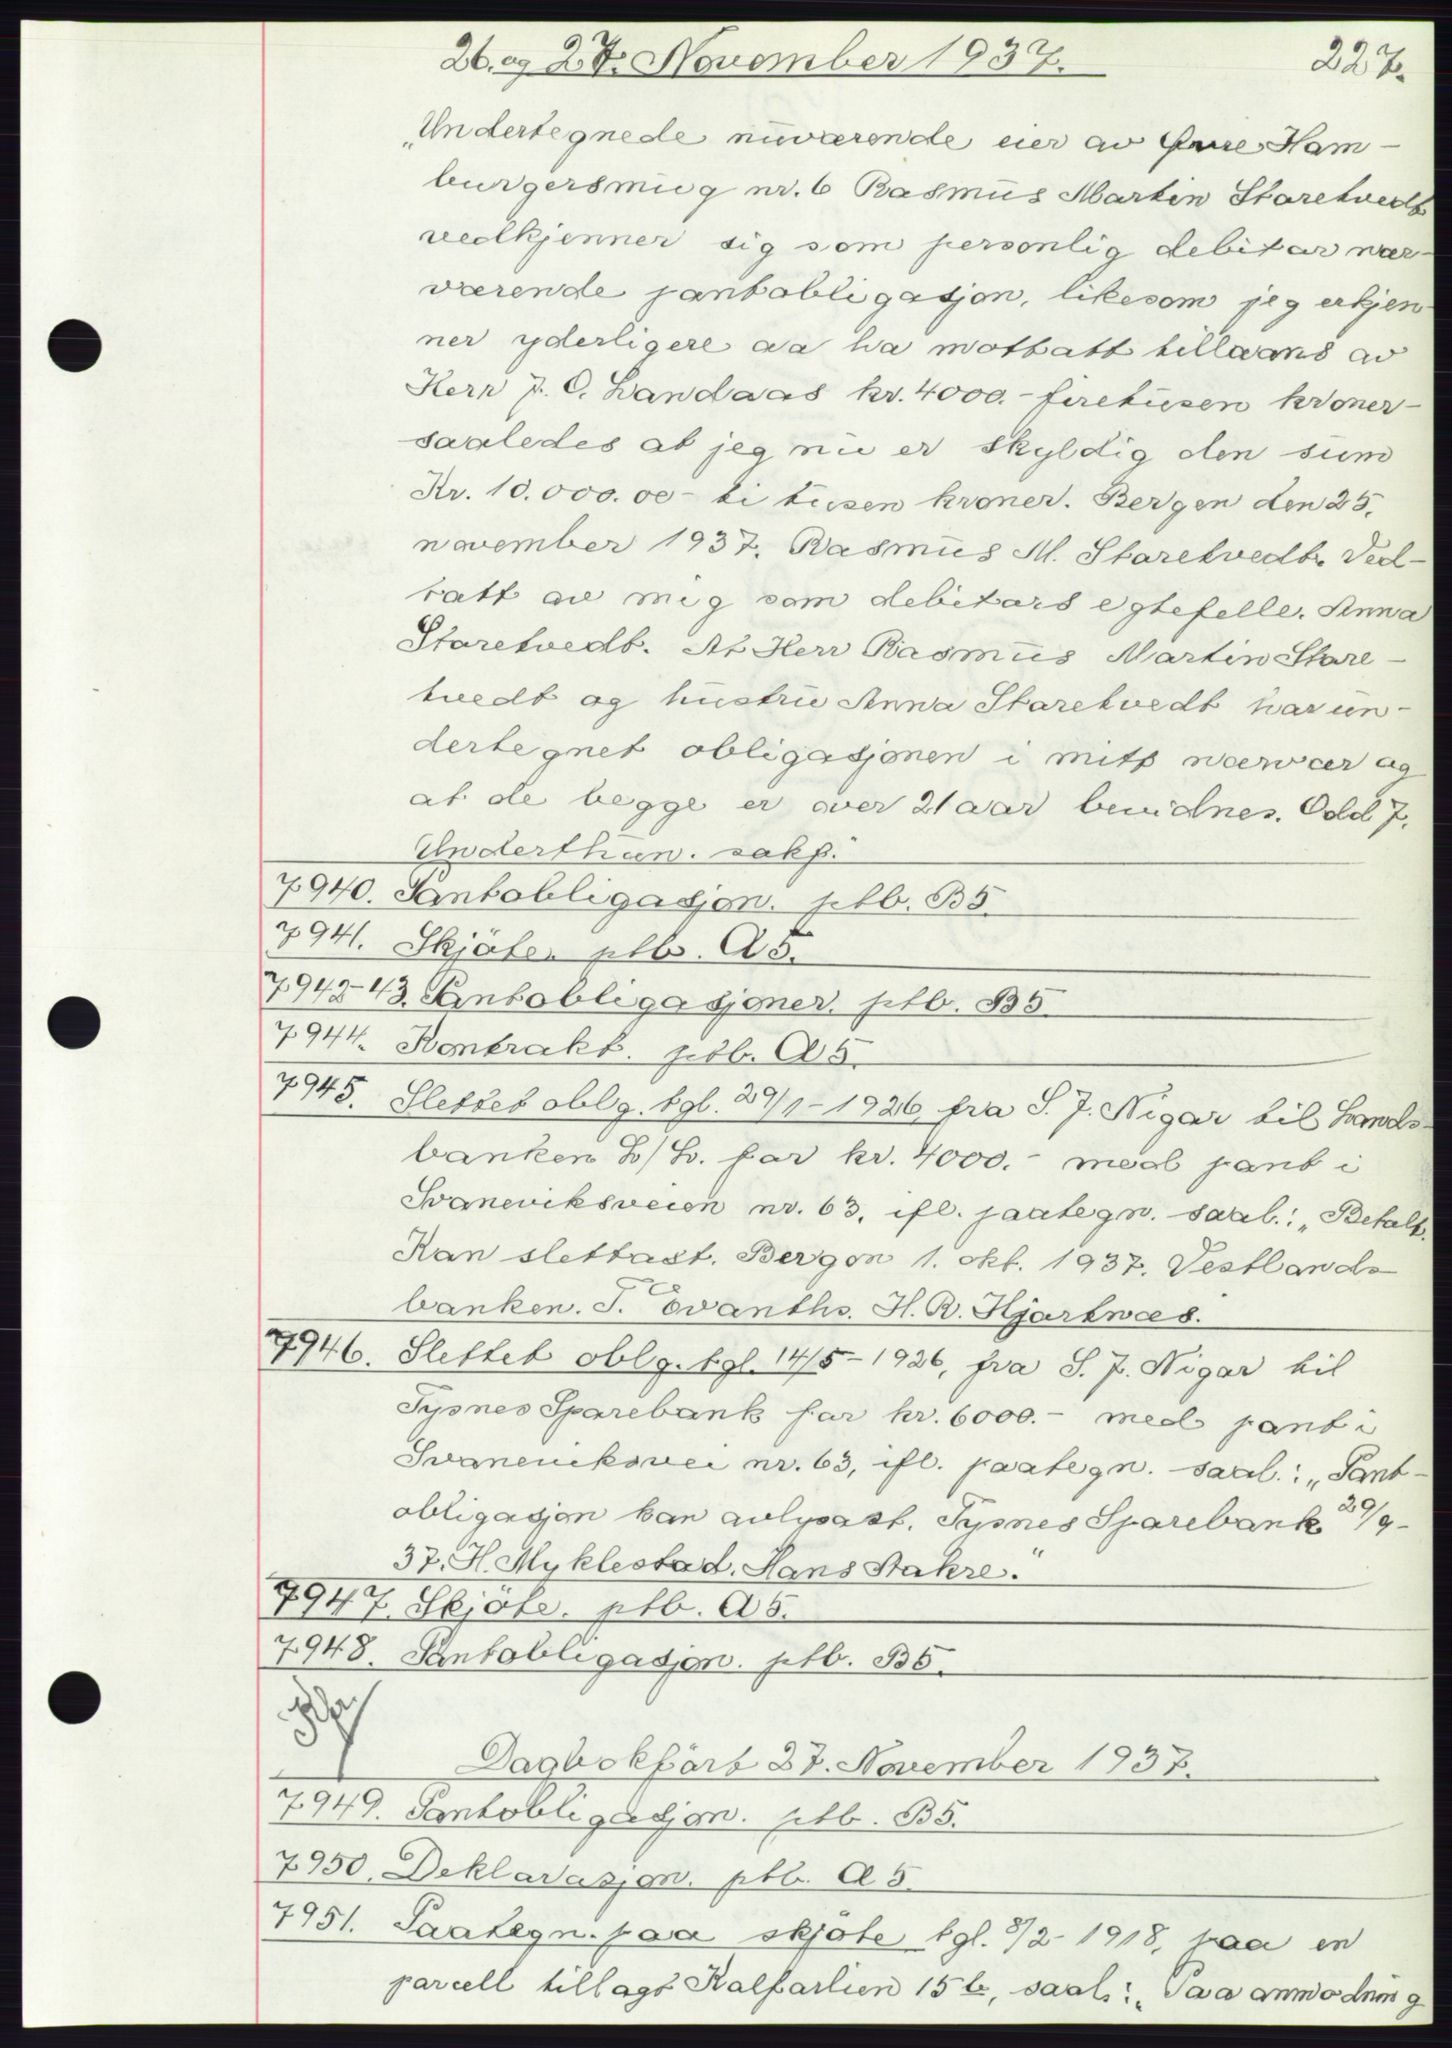 26. og 27. November 1937.
227.
„Undertegnede nuværende eier av Øvre Ham-
burgersmug nr. 6 Rasmus Martin Staretvedt
vedkjenner sig som personlig debitor nær-
værende pantobligasjon, likesom jeg erkjen-
ner yderligere aa ha mottatt tillaans av
Herr J. O. Landaas kr. 4000.- firetusen kroner-
saaledes at jeg nu er skyldig den sum
Kr. 10.000.00 - ti tusen kroner. Bergen den 25.
november 1937. Rasmus M. Staretvedt. Ved-
tatt av mig som debitors egtefelle. Anna
Staretvedt. At Herr Rasmus Martin Stare-
tvedt og hustru Anna Staretvedt har un-
dertegnet obligasjonen i mitt nærvær og
at de begge er over 21 aar bevidnes. Odd J.
Underthun. sakf."
7940. Pantobligasjon. ptb. B5.
7941. Skjöte. ptb. A5.
7942-43. Pantobligasjoner. ptb. B5.
7944. Kontrakt. ptb. A5.
7945. Slettet oblg. tgl. 29/1-1926, fra S. J. Nigar til Lands-
banken L/L. for kr. 4000.- med pant i
Svaneviksveien nr. 63, ifl. paategn. saal.: „Betalt.
Kan slettast. Bergen 1. okt. 1937. Vestlands-
banken. T. Evanths. H. R. Hjartnæs.
7946. Slettet oblg. tgl. 14/5-1926, fra S. J. Nigar til
Tysnes Sparebank for kr. 6000.- med pant i
Svaneviksvei nr. 63, ifl. paategn. saal.: „Pant-
obligasjon kan avlysast. Tysnes Sparebank 29/9-
37. H. Myklestad. Hans Aakre."
7947. Skjöte. ptb. A5.
7948. Pantobligasjon. ptb. B5.
Dagbokfört 27. November 1937.
7949. Pantobligasjon. ptb. B5.
7950. Deklarasjon. ptb. A5.
7951. Paategn. paa skjöte tgl. 8/2-1918, paa en
parcell tillagt Kalfarlien 15b, saal.: „Paa anmodning